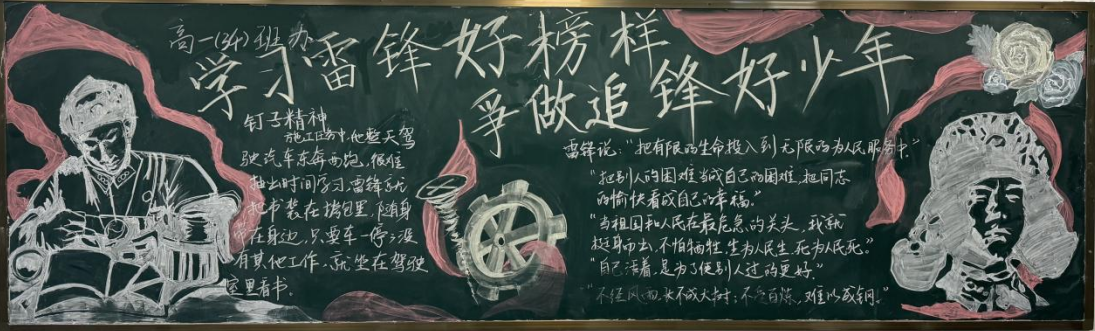 高一(34)班办
学习雷锋好榜样
争做追锋好少年
钉子精神
施工任务中,他整天驾
驶汽车东奔西跑,很难
抽出时间学习,雷锋就
把书装在挎包里,随身
带在身边,只要车一停,没
有其他工作,就坐在驾驶
室里看书。
雷锋说:“把有限的生命投入到无限的为人民服务中”
“把别人的困难当成自己的困难,把同志
的愉快看成自己的幸福。”
“当祖国和人民在最危急的关头,我就
挺身而出,不怕牺牲,生为人民生,死为人民死。”
“自己活着,是为了使别人过的更好。”
“不经风雨,长不成大树;不受百炼,难以成钢。”